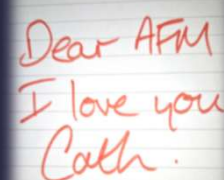 Dear AFM
I love you
Cath.